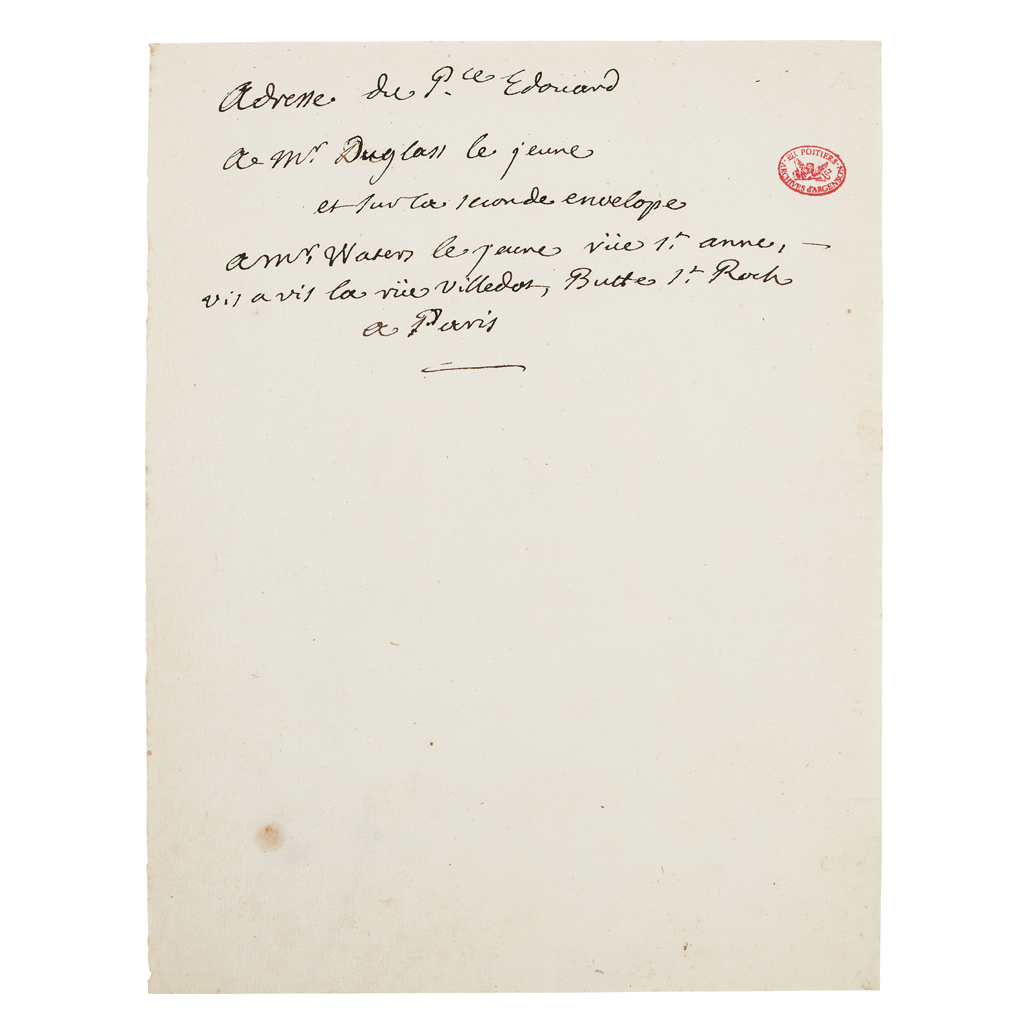 Adresse du P.ce Edouard
a Mr. Duglass le jeune
et sur la seconde envelope
a Mr. Waters le jeune rüe St. anne, —
vis a vis la rüe Villedot, Butte St. Roch
a Paris
BU. POITIERS
ARCHIVES d'ARGENSON